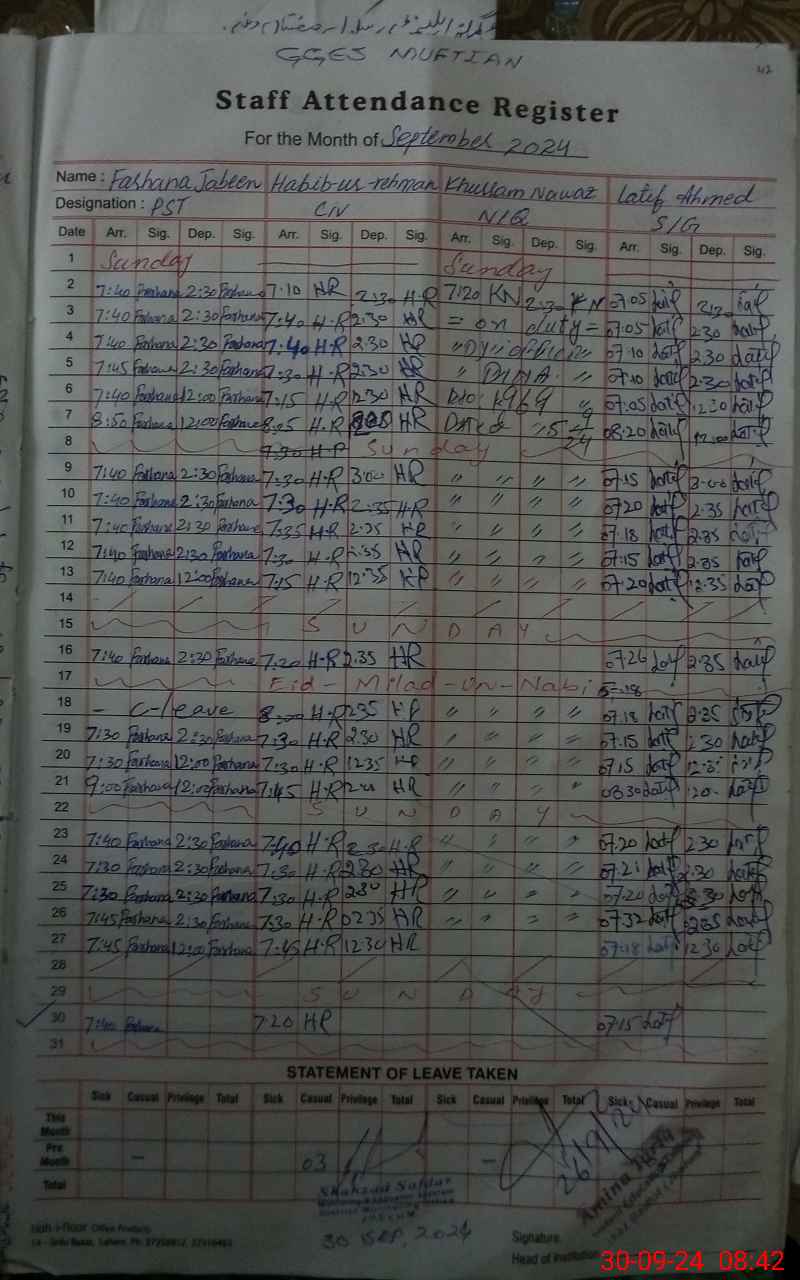 GGES MUFTIAN
42
Staff Attendance Register
For the Month of September 2024
Name : Farhana Jabeen Habib-ur-rehman Khurram Nawaz Latif Ahmed
Designation : PST C/N N/Q S/G
Date Arr. Sig. Dep. Sig. Arr. Sig. Dep. Sig. Arr. Sig. Dep. Sig. Arr. Sig. Dep. Sig.
1 Sunday Sunday
2 7:40 Farhana 2:30 Farhana 7:10 HR 2:30 H.R 7:20 KN 2:30 KN 07.05 Latif Latif
3 7:40 Farhana 2:30 Farhana 7:40 H.R 2.30 HR = on duty = 07.05 Latif 2.30 Latif
4 7:40 Farhana 2:30 Farhana 7:40 H.R 2.30 HR 07.10 Latif 2.30 Latif
5 7:45 Farhana 2:30 Farhana 7:30 H.R 2:30 HR 07.10 Latif 2.30 Latif
6 7:40 Farhana 12:00 Farhana 7:15 H.R 12.30 HR 07.05 Latif 12.30 Latif
7 8:50 Farhana 12:00 Farhana 8:05 H.R HR Dated 08.20 Latif 12.00 Latif
8 7.30 HR Sunday
9 7:40 Farhana 2:30 Farhana 7:30 H.R 3:00 HR " " " " 07.15 Latif 3.00 Latif
10 7:40 Farhana 2:30 Farhana 7:30 H.R 2:35 H.R " " " " 0720 Latif 2.35 Latif
11 7:40 Farhana 2:30 Farhana 7:35 H.R 2.35 HR " " " " 07.18 Latif 2.35 Latif
12 7:40 Farhana 2:30 Farhana 7:30 H.R HR " " " " 07.15 Latif 2.35 Latif
13 7:40 Farhana 12:00 Farhana 7:15 H.R 12:35 HR " " " " 07.20 Latif 12.35 Latif
14
15 SUNDAY
16 7:40 Farhana 2:30 Farhana 7:20 H.R 2.35 HR 07.26 Latif 2.35 Latif
17 Eid-Milad-un-Nabi
18 - C-leave 8:00 H.R 2:35 HR " " " " 07.18 Latif 2.35 Latif
19 7:30 Farhana 2:30 Farhana 7:30 H.R 2.30 HR " " " " 07.15 Latif 2.30 Latif
20 7:30 Farhana 12:00 Farhana 7:30 H.R 12.35 HR " " " " 07.15 Latif Latif
21 9:00 Farhana 12:00 Farhana 7:45 H.R HR " " " " 08.30 Latif Latif
22 SUNDAY
23 7:40 Farhana 2:30 Farhana 7:40 H.R 2:30 H.R " " " " 07.20 Latif 2.30 Latif
24 7:30 Farhana 2:30 Farhana 7:30 H.R 2.30 HR " " " " 07.21 Latif 2.30 Latif
25 7:30 Farhana 2:30 Farhana 7:30 H.R 2:30 HR " " " " 07.20 Latif 2.30 Latif
26 7:45 Farhana 2:30 Farhana 7:30 H.R 02:35 HR " " " " 07.32 Latif 2.35 Latif
27 7:45 Farhana 12:00 Farhana 7:45 H.R 12:30 HR 07.18 Latif 12.30 Latif
28
29 SUNDAY
30 7:40 Farhana 7:20 HR 07.15 Latif
31
STATEMENT OF LEAVE TAKEN
Sick Casual Privilege Total Sick Casual Privilege Total Sick Casual Privilege Total Sick Casual Privilege Total
This Month
Pre Month - 03 -
Total
26/9/24
Shahzad Safdar
Amina
30 SEP, 2024
Office Products
Signature.
Head of Institution
30-09-24 08:42